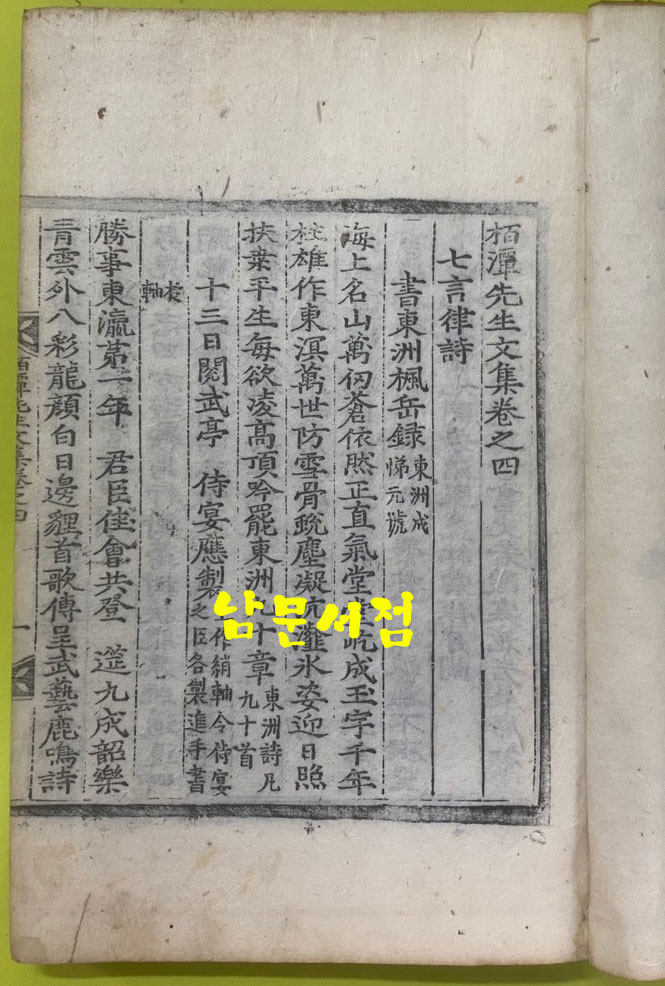 栢潭先生文集卷之四
七言律詩
書東洲楓岳録 東洲成
悌元號
海上名山萬仞蒼依然正直氣堂堂屹成玉宇千年
柱雄作東溟萬世防雪骨蛻塵凝沆瀣氷姿迎日照
扶桒平生每欲凌高頂吟罷東洲九十章 東洲詩凡
九十首
十三日閱武亭 侍宴應製 作絹軸令侍宴
之臣各製進手書
於軸
勝事東瀛苐一年 君臣佳會共登 筵九成韶樂
青雲外八彩龍顔白日邊貍首歌傳呈武藝鹿鳴詩
栢潭先生文集卷之四
一
남문서점